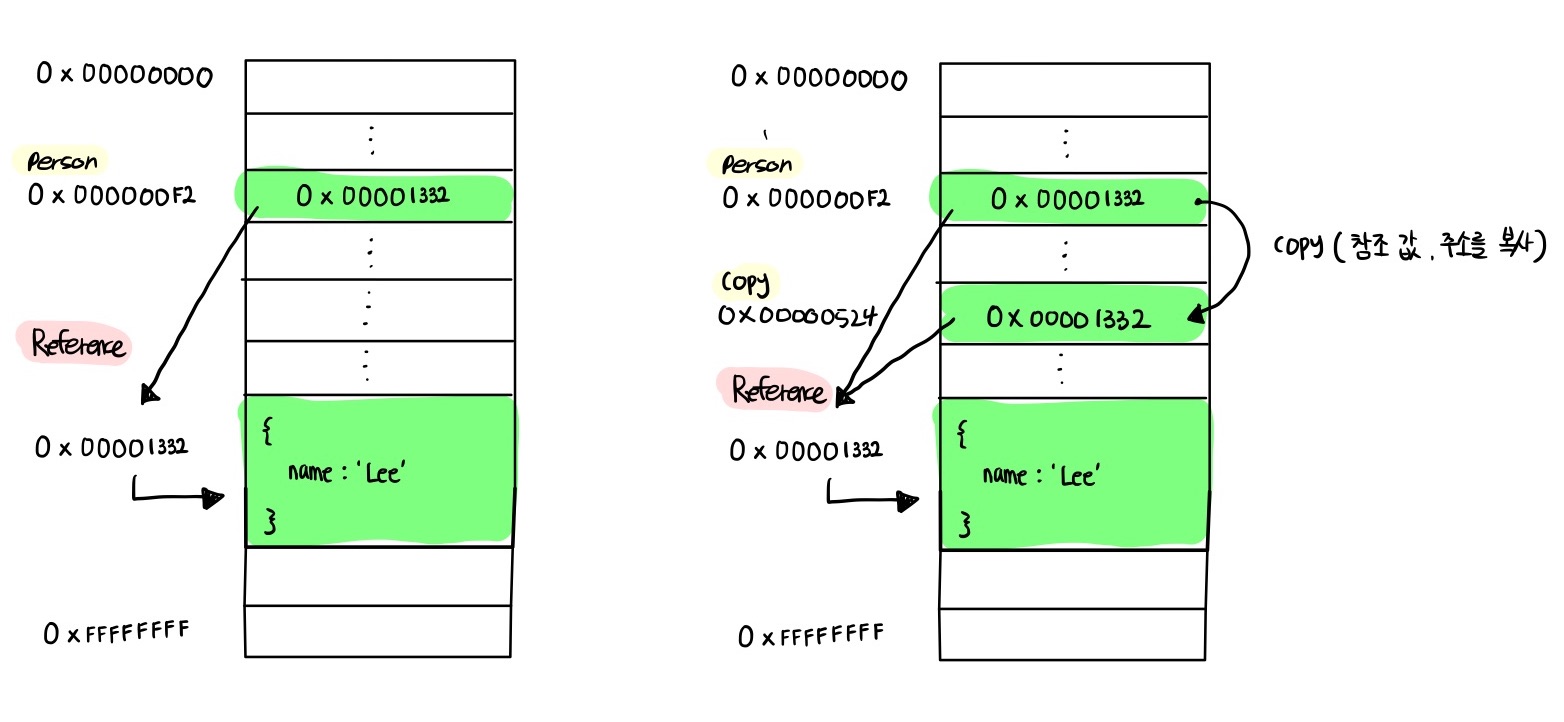 0x00000000
Person
0x000000F2
0x00001332
Reference
0x00001332
{
name : 'Lee'
}
0xFFFFFFFF
0x00000000
Person
0x000000F2
0x00001332
copy (참조 값, 주소를 복사)
Copy
0x00000524
0x00001332
Reference
0x00001332
{
name : 'Lee'
}
0xFFFFFFFF